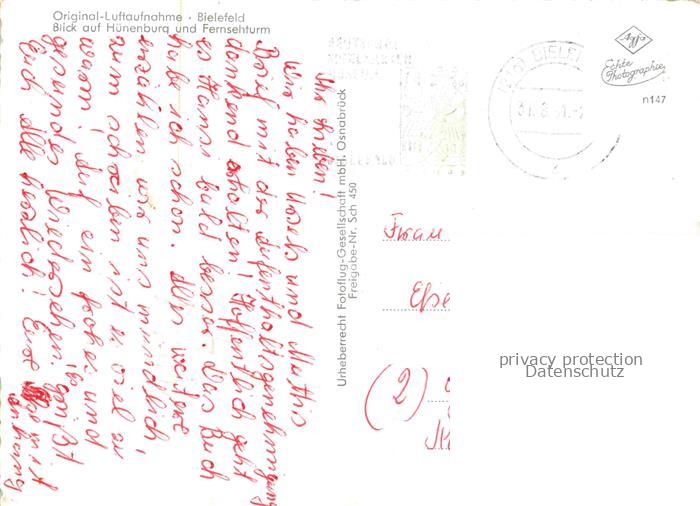 Original-Luftaufnahme · Bielefeld
Blick auf Hünenburg und Fernsehturm
Ihr Lieben!
Wir haben Ursels und Mathis
Brief mit der Aufenthaltsgenehmigung
dankend erhalten! Hoffentlich geht
es Hansi bald besser. Das Buch
habe ich schon. Alles weitere
erzählen wir uns mündlich,
zum schreiben ist es viel zu
warm! Auf ein frohes und
gesundes Wiedersehen! grüßt
Euch alle herzlich! Eure
mit
anhang
Urheberrecht Fotoflug-Gesellschaft mbH. Osnabrück
Freigabe-Nr. Sch 450
Agfa
Echte
Photographie
n147
Frau
(2)
privacy protection
Datenschutz